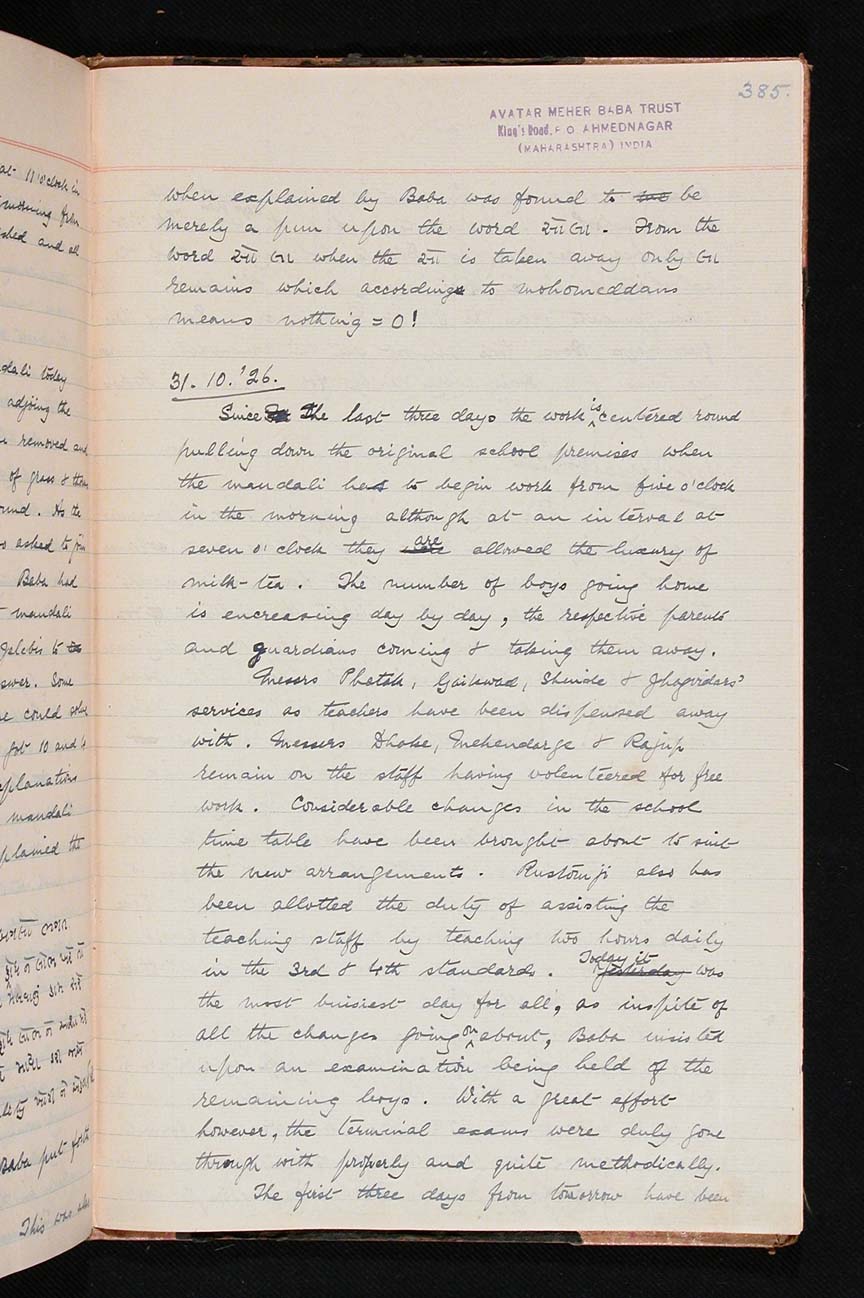 385.
AVATAR MEHER BABA TRUST
King's Road, P. O. AHMEDNAGAR
(MAHARASHTRA) INDIA
when explained by Baba was found to be
merely a pun upon the word . From the
word when the is taken away only
remains which according to mohomeddans
means nothing = 0!
31. 10. '26.
Since The last three days the work is centered round
pulling down the original school premises when
the mandali has to begin work from five o'clock
in the morning although at an interval at
seven o'clock they are allowed the luxury of
milk-tea. The number of boys going home
is encreasing day by day, the respective parents
and guardians coming & taking them away.
Messrs Phatak, Gaikwad, Shinde & Jhagirdars'
services as teachers have been dispensed away
with. Messers Dhake, Mehendarge & Rajup
remain on the staff having volenteered for free
work. Considerable changes in the school
time table have been brought about to suit
the new arrangements. Rustomji also has
been allotted the duty of assisting the
teaching staff by teaching two hours daily
in the 3rd & 4th standards. Today it yesterday was
the most buisiest day for all, as inspite of
all the changes going on about, Baba insisted
upon an examination being held of the
remaining boys. With a great effort
however, the terminal exams were duly gone
through with properly and quite methodically.
The first three days from tomorrow have been
at 11 o'clock in
morning from
and all
today
adjoing the
removed and
of grass &
. As the
asked to join
Baba had
mandali
Jelebis to
. Some
could solve
got 10 and
mandali
the
Baba put forth
This was